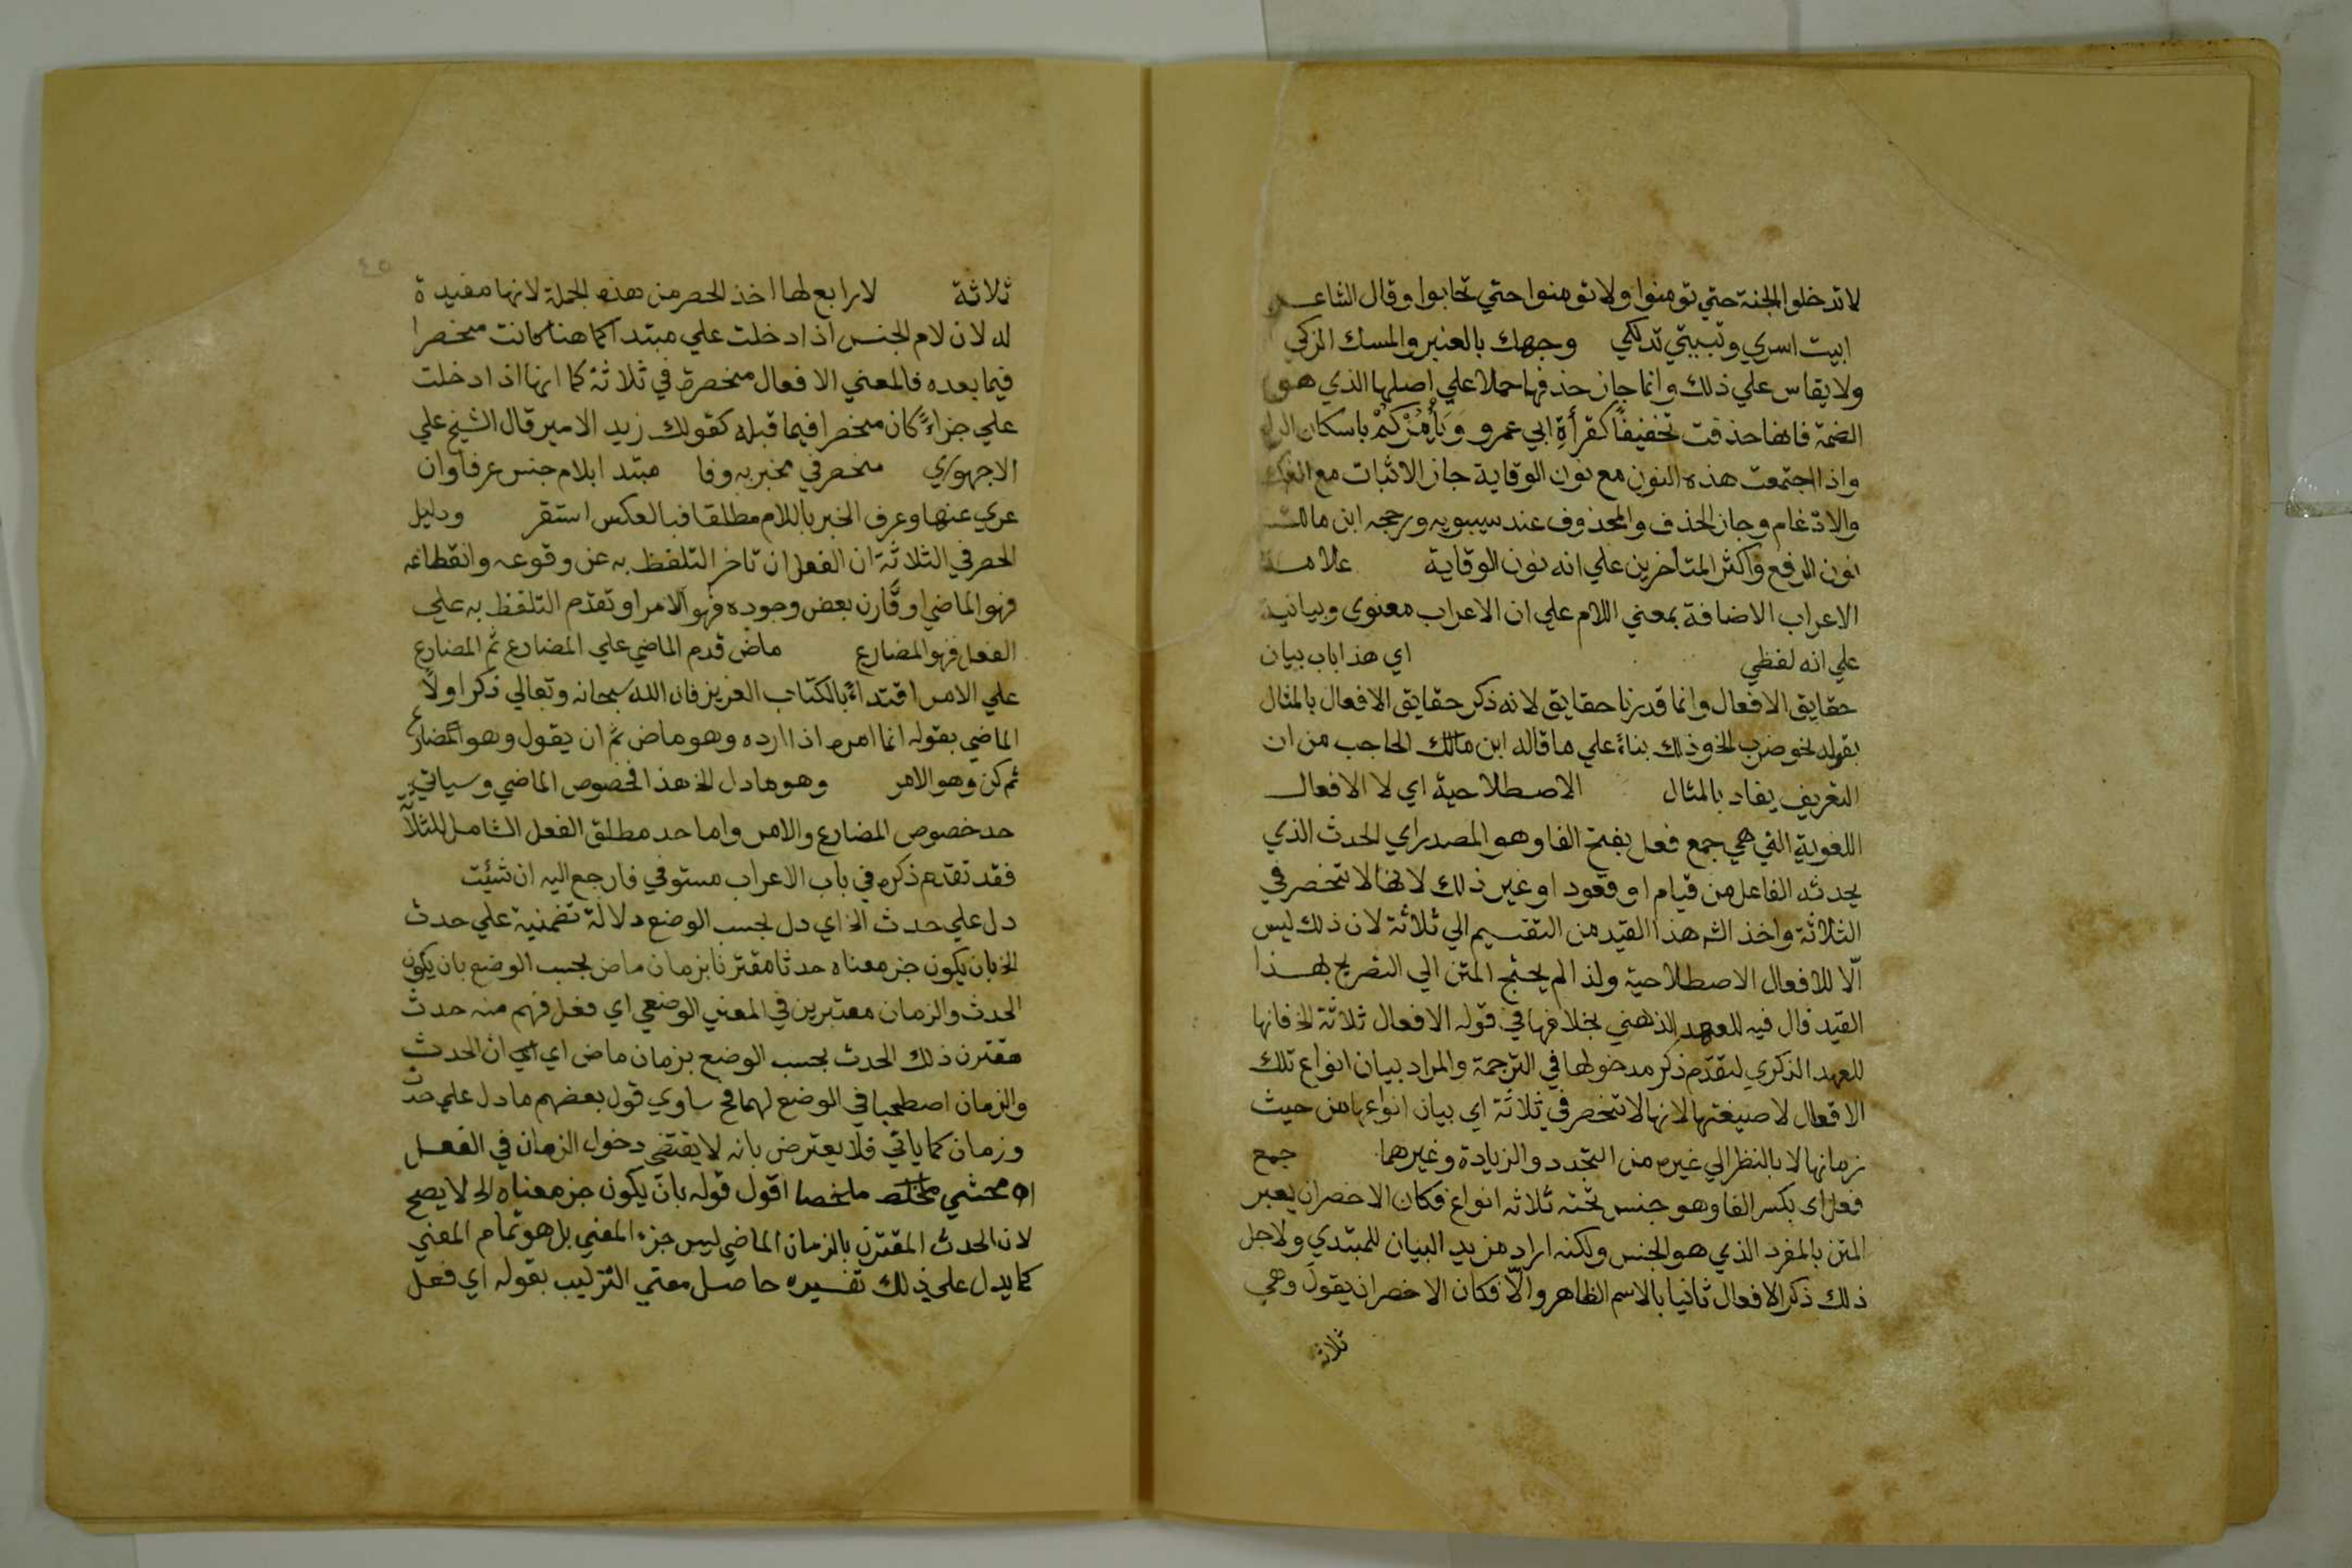 لا تدخلوا الجنة حتي تومنوا ولا تومنوا حتي تحابوا وقال الشاعر
ابيت اسري وتبيتي تدلكي وجهك بالعنبر والمسك الزكي
ولا يقاس علي ذلك وانما جاز حذفها حملا علي اصلها الذي هو
الضمة فانها حذفت تخفيفًا كقرأة ابي عمرو وَيَأْمُرْكُمْ باسكان الرا
واذا اجتمعت هذه النون مع نون الوقاية جاز الاثبات مع الفك
والادغام وجاز الحذف والمحذوف عند سيبويه ورجحه ابن مالك
نون الرفع واكثر المتأخرين علي انه نون الوقاية علامة
الاعراب الاضافة بمعني اللام علي ان الاعراب معنوي وبيانية
علي انه لفظي اي هذا باب بيان
حقايق الافعال وانما قدرنا حقايق لانه ذكر حقايق الافعال بالمثال
بقوله نحو ضرب الخ وذلك بناءً علي ما قاله ابن مالك الحاجب من ان
التعريف يفاد بالمثال الاصطلاحية اي لا الافعال
اللغوية التي هي جمع فعل بفتح الفا وهو المصدر اي الحدث الذي
يحدثه الفاعل من قيام او قعود او غير ذلك لانها لا تنحصر في
الثلاثة واخذ الشه هذا القيد من التقسيم الي ثلاثة لان ذلك ليس
الّا للافعال الاصطلاحية ولذا لم يحتج المتن الي التصريح بهذا
القيد فال فيه للعهد الذهني بخلافها في قوله الافعال ثلاثة الخ فانها
للعهد الذكري لتقدم ذكر مدخولها في الترجمة والمراد بيان انواع تلك
الافعال لا صيغتها لانها لا تنحصر في ثلاثة اي بيان انواعها من حيث
زمانها لا بالنظر الي غيره من التجدد والزيادة وغيرهما جمع
فعل اى بكسر الفا وهو جنس تحته ثلاثه انواع فكان الاخصر ان يعبر
المتن بالمفرد الذي هو الجنس ولكنه اراد مزيد البيان للمبتدي ولاجل
ذلك ذكر الافعال ثانيا بالاسم الظاهر والّا فكان الاخصر ان يقول وهي
ثلاثة
٤٥
ثلاثة لا رابع لها اخذ الحصر من هذه الجملة لانها مفيدة
له لان لام الجنس اذا دخلت علي مبتدا كما هنا كانت منحصرا
فيما بعده فالمعني الافعال منحصرة في ثلاثة كما انها اذا دخلت
علي جزاءً كان منحصرا فيما قبله كقولك زيد الامير قال الشيخ علي
الاجهوري منحصر في مخبر به وفا مبتدا بلام جنس عرفا وان
عري عنها وعرف الخبر باللام مطلقا فبالعكس استقر ودليل
الحصر في الثلاثة ان الفعل ان تاخر التلفظ به عن وقوعه وانقطاعه
فهو الماضي او قارن بعض وجوده فهو الامر او تقدم التلفظ به علي
الفعل فهو المضارع ماض قدم الماضي علي المضارع ثم المضارع
علي الامر اقتداءً بالكتاب العزيز فان الله سبحانه وتعالي ذكر اولًا
الماضي بقوله انما امره اذا اراده وهو ماض ثم ان يقول وهو المضارع
ثم كن وهو الامر وهو ما دل الخ هذا لخصوص الماضي وسياتي
حد خصوص المضارع والامر واما حد مطلق الفعل الشامل للثلاثة
فقد تقدم ذكره في باب الاعراب مستوفي فارجع اليه ان شئت
دل علي حدث الخ اي دل بحسب الوضع دلالة تضمنية علي حدث
الخ بان يكون جز معناه حدثا مقترنا بزمان ماض بحسب الوضع بان يكون
الحدث والزمان معتبرين في المعني الوضعي اي فعل فهم منه حدث
مقترن ذلك الحدث بحسب الوضع بزمان ماض اي اي ان الحدث
والزمان اصطحبا في الوضع لهما فح يساوي قول بعضهم ما دل علي حدث
وزمان كما ياتي فلا يعترض بانه لا يقتضي دخول الزمان في الفعل
اه محشي ملخصا اقول قوله بان يكون جز معناه الخ لا يصح
لان الحدث المقترن بالزمان الماضي ليس جزء المعني بل هو تمام المعني
كما يدل علي ذلك تفسيره حاصل معني التركيب بقوله اي فعل